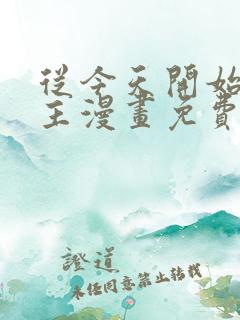 從今天開始
王漫畫免費
證道
未任同意禁止轉載